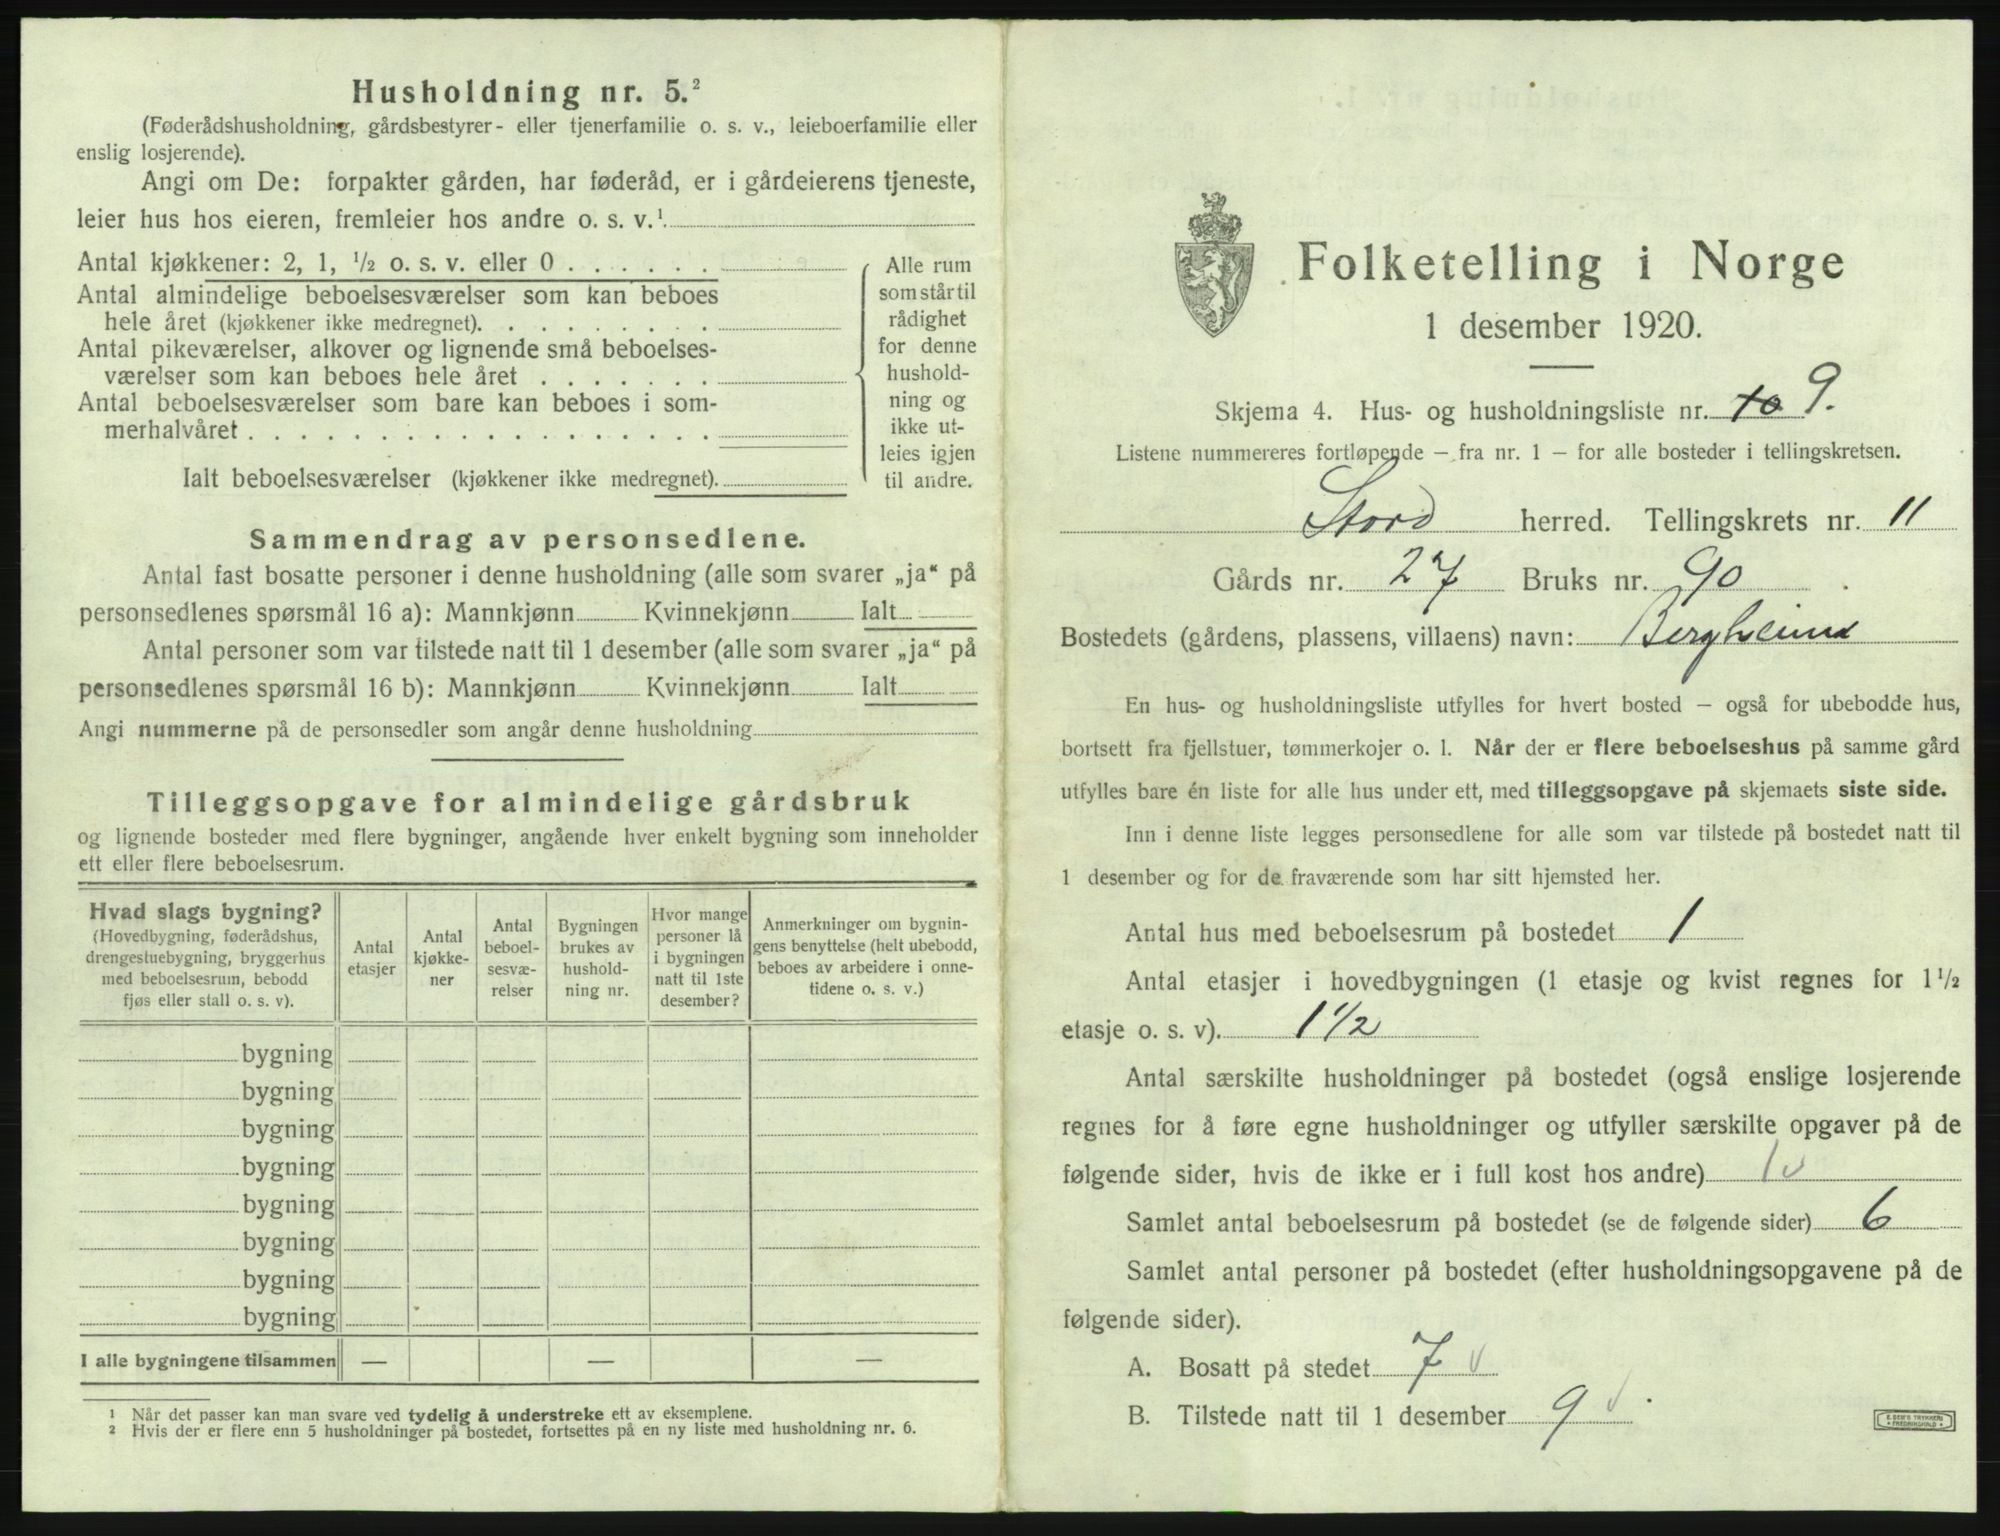 Husholdning nr. 5.²
(Føderådshusholdning, gårdsbestyrer- eller tjenerfamilie o. s. v., leieboerfamilie eller
enslig losjerende).
Angi om De: forpakter gården, har føderåd, er i gårdeierens tjeneste,
leier hus hos eieren, fremleier hos andre o. s. v.¹
Antal kjøkkener: 2, 1, ½ o. s. v. eller 0 . . . . . .
Antal almindelige beboelsesværelser som kan beboes
hele året (kjøkkener ikke medregnet). . . . . . . . .
Antal pikeværelser, alkover og lignende små beboelses-
værelser som kan beboes hele året . . . . . . .
Antal beboelsesværelser som bare kan beboes i som-
merhalvåret . . . . . . . . . . . . . . . . . .
Ialt beboelsesværelser (kjøkkener ikke medregnet).
Alle rum
som står til
rådighet
for denne
hushold-
ning og
ikke ut-
leies igjen
til andre.
Sammendrag av personsedlene.
Antal fast bosatte personer i denne husholdning (alle som svarer „ja“ på
personsedlenes spørsmål 16 a): Mannkjønn Kvinnekjønn Ialt
Antal personer som var tilstede natt til 1 desember (alle som svarer „ja“ på
personsedlenes spørsmål 16 b): Mannkjønn Kvinnekjønn Ialt
Angi nummerne på de personsedler som angår denne husholdning
Tilleggsopgave for almindelige gårdsbruk
og lignende bosteder med flere bygninger, angående hver enkelt bygning som inneholder
ett eller flere beboelsesrum.
Hvad slags bygning?
(Hovedbygning, føderådshus,
drengestuebygning, bryggerhus
med beboelsesrum, bebodd
fjøs eller stall o. s. v).
Antal
etasjer
Antal
kjøkke-
ner
Antal
beboel-
sesvæ-
relser
Bygningen
brukes av
hushold-
ning nr.
Hvor mange
personer lå
i bygningen
natt til 1ste
desember?
Anmerkninger om bygnin-
gens benyttelse (helt ubebodd,
beboes av arbeidere i onne-
tidene o. s. v.)
bygning
bygning
bygning
bygning
bygning
bygning
bygning
bygning
I alle bygningene tilsammen — — —
¹ Når det passer kan man svare ved tydelig å understreke ett av eksemplene.
² Hvis der er flere enn 5 husholdninger på bostedet, fortsettes på en ny liste med husholdning nr. 6.
Folketelling i Norge
1 desember 1920.
Skjema 4. Hus- og husholdningsliste nr. 10 9.
Listene nummereres fortløpende – fra nr. 1 – for alle bosteder i tellingskretsen.
Stord herred. Tellingskrets nr. 11
Gårds nr. 27 Bruks nr. 90
Bostedets (gårdens, plassens, villaens) navn: Bergheim
En hus- og husholdningsliste utfylles for hvert bosted – også for ubebodde hus,
bortsett fra fjellstuer, tømmerkojer o. l. Når der er flere beboelseshus på samme gård
utfylles bare én liste for alle hus under ett, med tilleggsopgave på skjemaets siste side.
Inn i denne liste legges personsedlene for alle som var tilstede på bostedet natt til
1 desember og for de fraværende som har sitt hjemsted her.
Antal hus med beboelsesrum på bostedet 1
Antal etasjer i hovedbygningen (1 etasje og kvist regnes for 1½
etasje o. s. v). 1 1/2
Antal særskilte husholdninger på bostedet (også enslige losjerende
regnes for å føre egne husholdninger og utfyller særskilte opgaver på de
følgende sider, hvis de ikke er i full kost hos andre) 1 v
Samlet antal beboelsesrum på bostedet (se de følgende sider) 6
Samlet antal personer på bostedet (efter husholdningsopgavene på de
følgende sider).
A. Bosatt på stedet 7 v
B. Tilstede natt til 1 desember 9 v
E. SEM'S TRYKKERI
FREDRIKSHALD